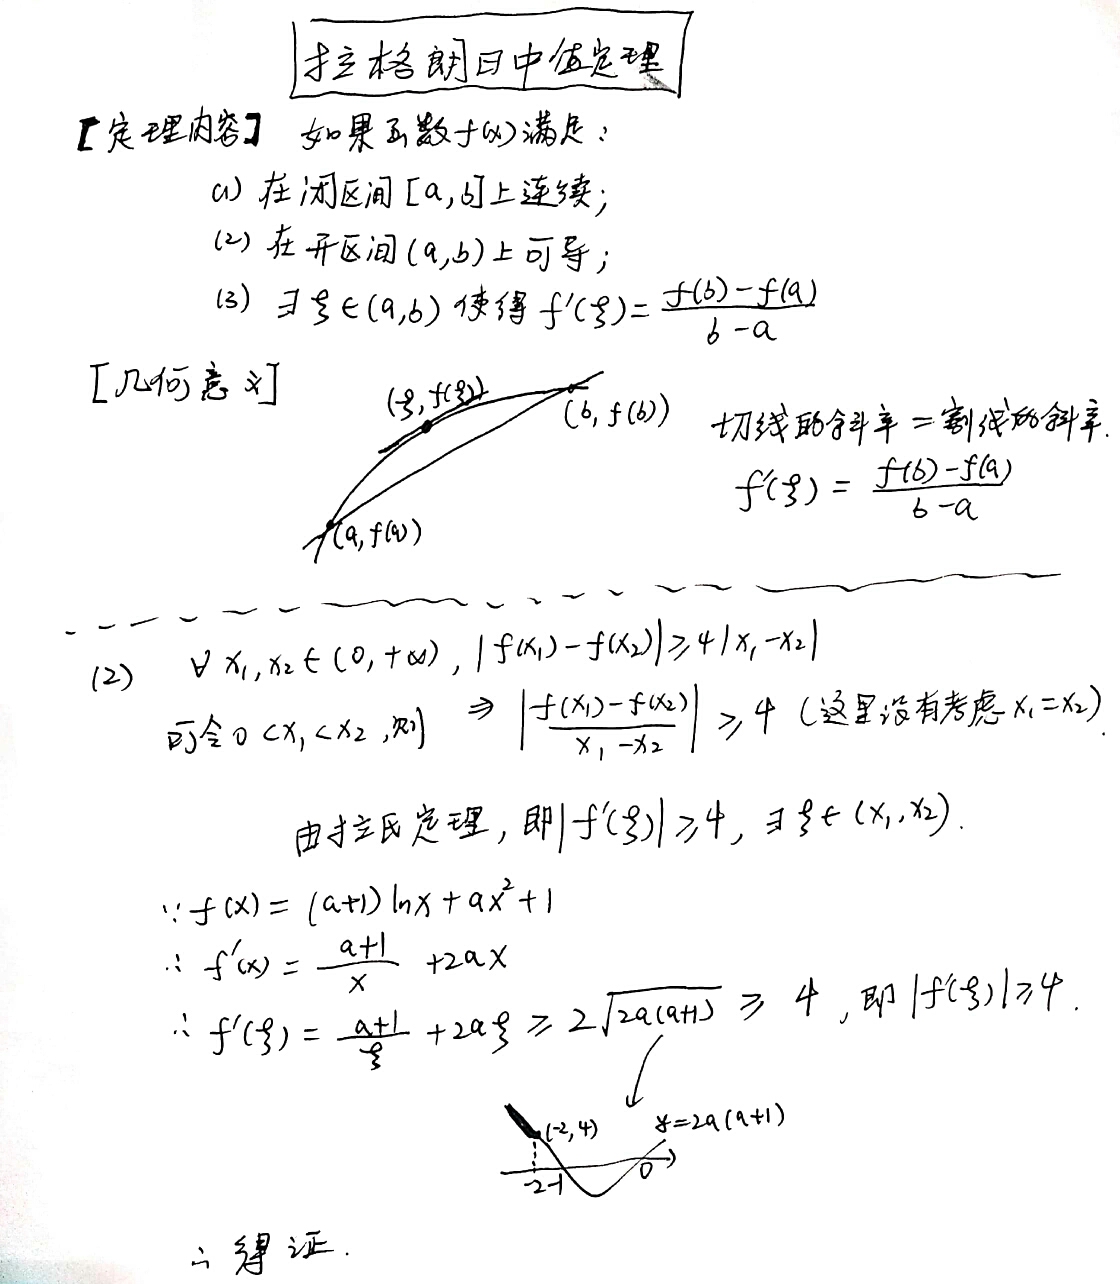 拉格朗日中值定理
【定理内容】 如果函数f(x)满足：
(1) 在闭区间[a,b]上连续；
(2) 在开区间(a,b)上可导；
(3) ∃ξ∈(a,b) 使得 f'(ξ)=\frac{f(b)-f(a)}{b-a}
[几何意义]
(ξ,f(ξ))
(b,f(b))
(a,f(a))
切线的斜率=割线的斜率.
f'(ξ)=\frac{f(b)-f(a)}{b-a}
(2) ∀x₁,x₂∈(0,+∞),|f(x₁)-f(x₂)|≥4|x₁-x₂|
可令0<x₁<x₂,则 ⇒ |\frac{f(x₁)-f(x₂)}{x₁-x₂}|≥4 (这里没有考虑x₁=x₂).
由拉氏定理，即|f'(ξ)|≥4，∃ξ∈(x₁,x₂).
∵f(x)=(a+1)lnx+ax²+1
∴f'(x)=\frac{a+1}{x}+2ax
∴f'(ξ)=\frac{a+1}{ξ}+2aξ≥2\sqrt{2a(a+1)}≥4，即|f'(ξ)|≥4.
(-2,4)
y=2a(a+1)
-2 -1 0
∴得证.